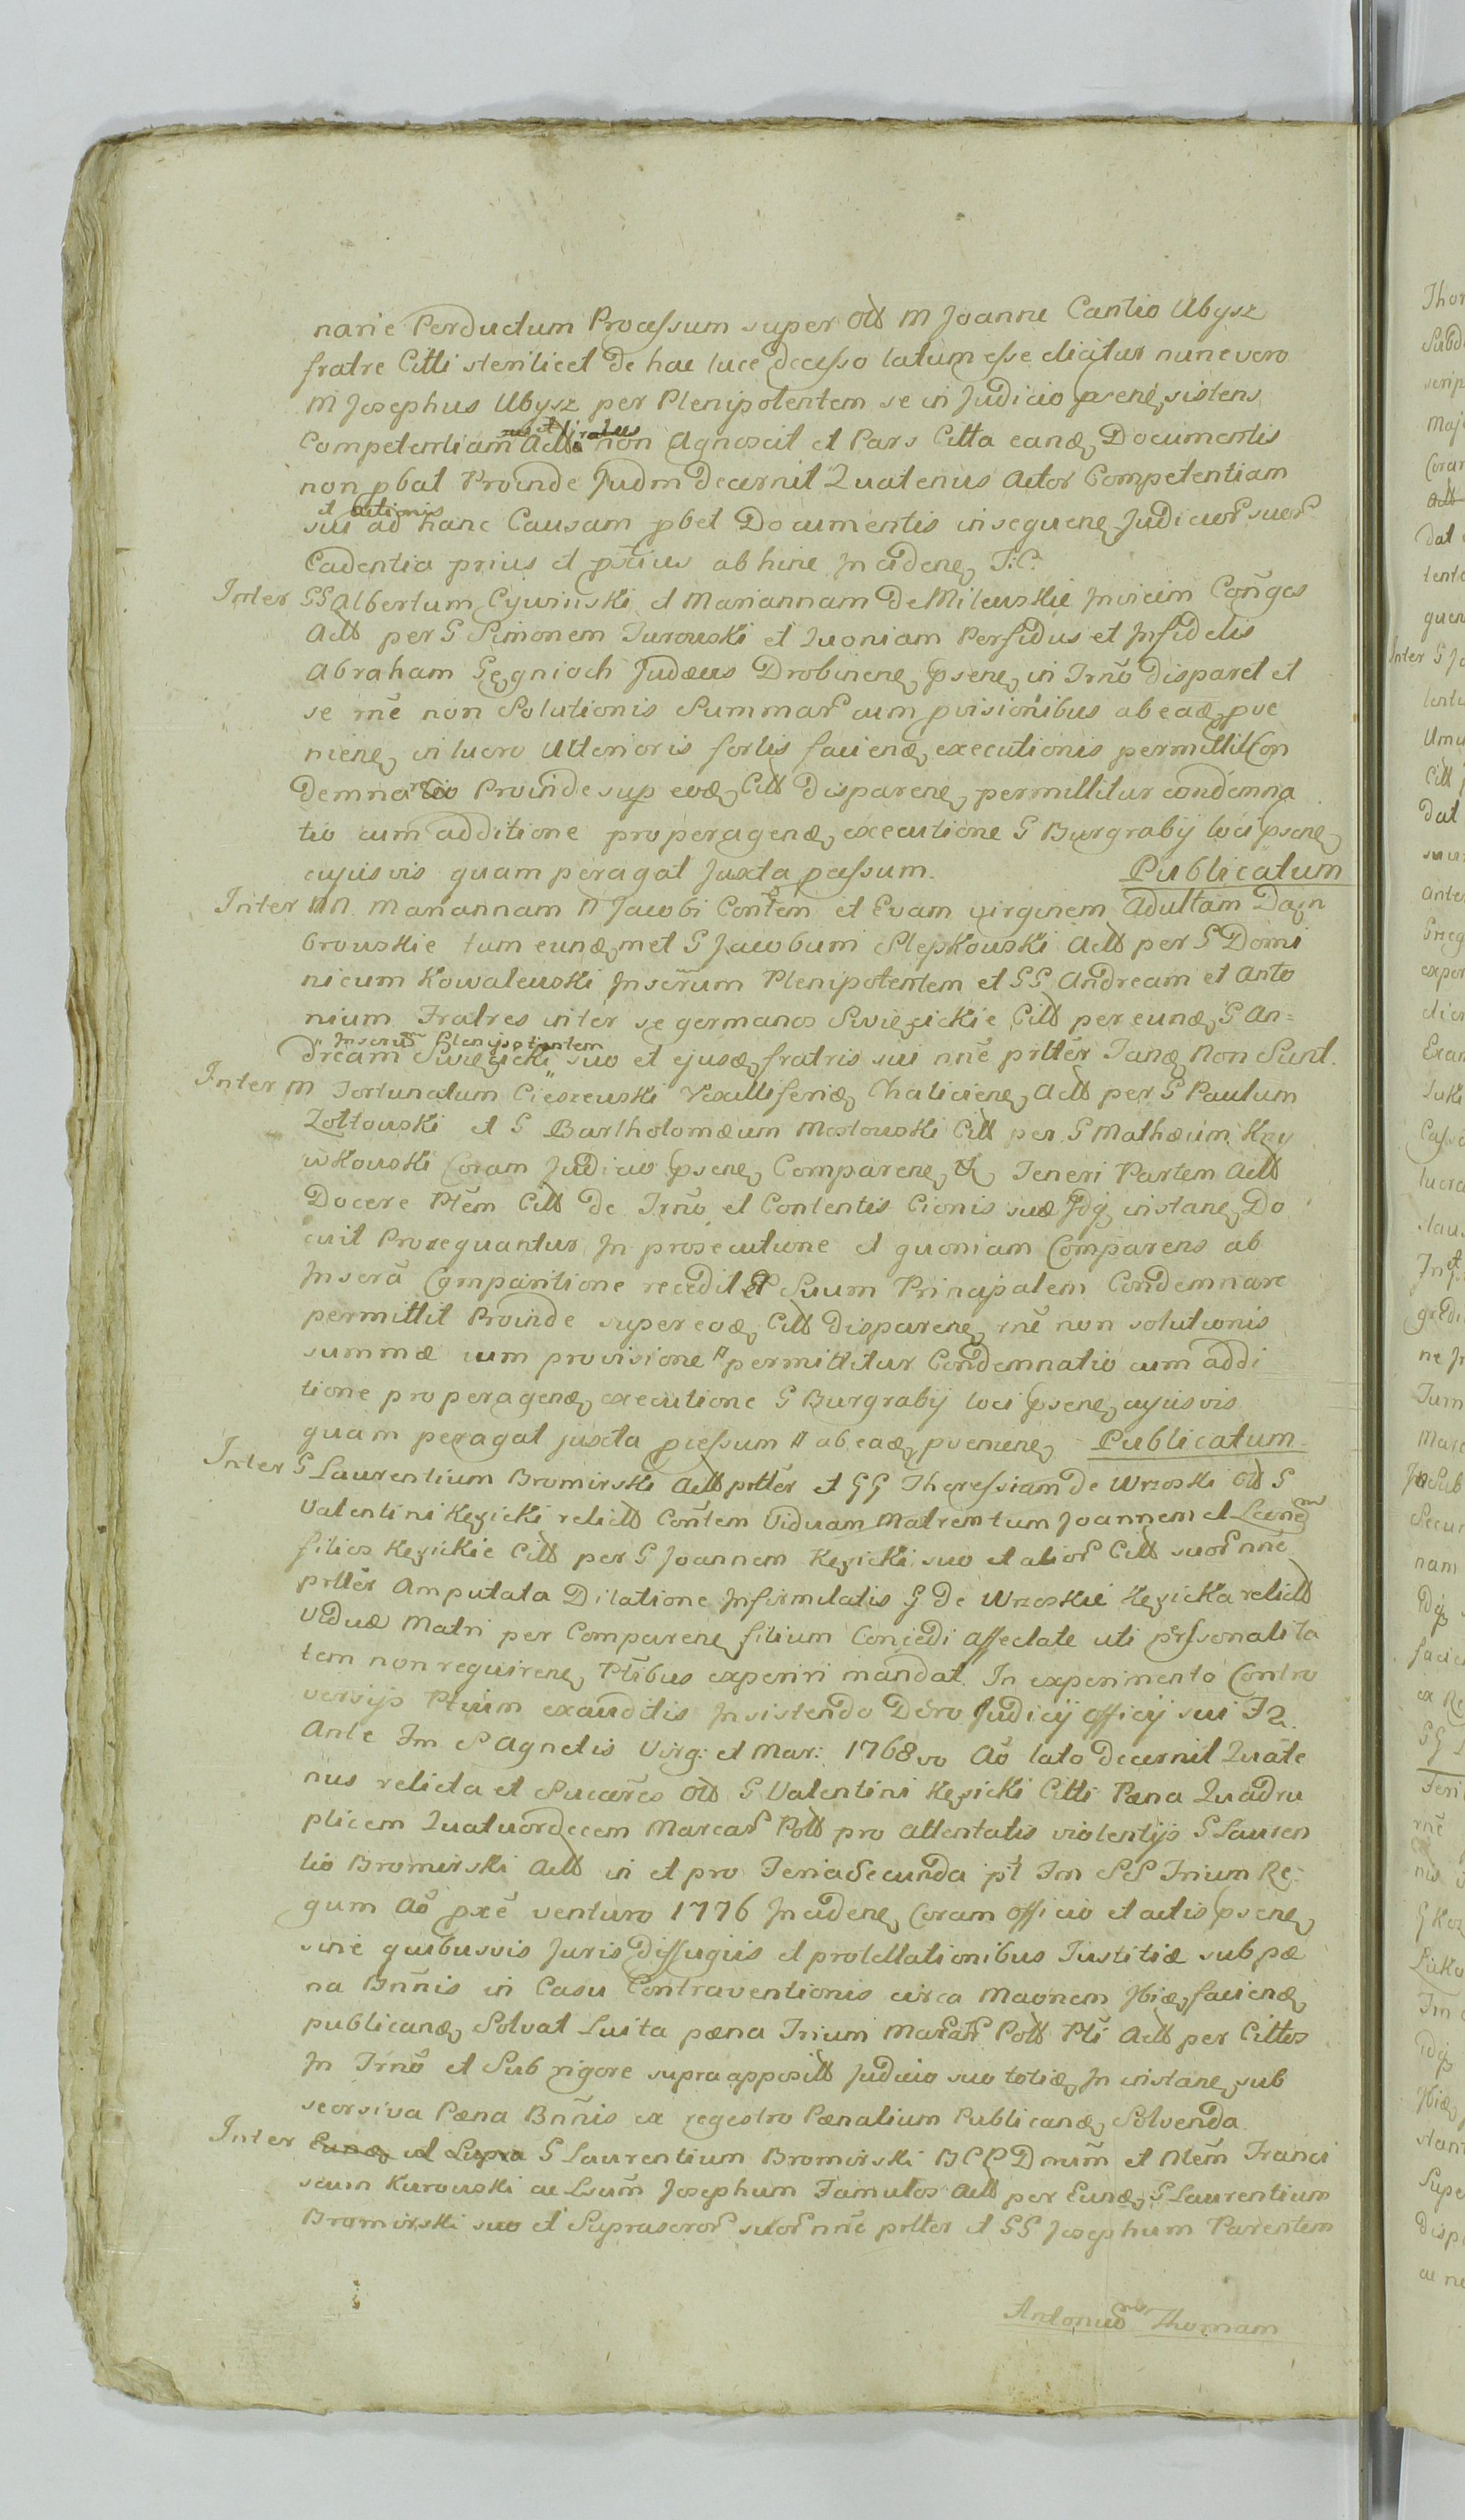 narie Perductum Processum super Olb M Joanne Cantio Ubysz
fratre Citti sterilicet De hac luce decesso latum esse dicitur nunc vero
M Josephus Ubysz per Plenipotentem se in Judicio psene, sistens
Competentiam Actt non Agnoscit et Pars Citta eand, Documentis
non pbat Proinde Judm Decernit Quatenus Actor Competentiam
et Actionis
sui ad hanc Causam pbet Documentis in sequene, Judicior suor
Cadentia prius et pstius ab hinc Incidene, T:C:
Inter GG Albertum Cywinski et Mariannam De Milewskie Invicem Cones
Actt per G Simonem Turowski et Quoniam Perfidus et Infidelis
Abraham Judæus Drobinene, psene, in Trno disparet et
se rne non Solutionis Summar cum pvisionibus ab ead, pve
niene, in lucro Ulterioris fortis faciend, executionis permittit Con
demnatio Proinde sup eod, Citt Disparene, permittitur condemna
tio cum additione pro peragend, executione G Burgrabij loci psene,
cujusvis quam peragat Juxta pcessum. Publicatum
Inter NN. Mariannam N Jacobi Contem et Evam virginem Adultam Dąm
browskie tum eund, met G Jacobum Slepkowski Actt per G Domi
nicum Kowalewski Inscrum Plenipotentem et GG Andream et Anto
nium Fratres inter se germanos Swięzickie Citt per eund, G An=
Inscrum Plenipotentem
dream Swięzicki suo et ejusd, fratris sui nne prtter Tand, Non Sunt.
Inter M Fortunatum Cieszewski Vexilliferid, Chaliciene, Actt per G Paulum
Zołtowski et G Bartholomæum Mostowski Citt per G Mathæum Krzy
wkowski Coram Judicio psene, Comparene, Teneri Partem Actt
Docere Ptem Citt De Trno et Contentis Cionis suæ Jdq instane, Do
cuit Prosequantur In prosecutione et quoniam Comparens ab
Inscra Comparitione recedit et Suum Principalem Condemnare
permittit Proinde super eod, Citt Disparene, rne non solutionis
summæ cum provisione # permittitur Condemnatio cum addi
tione pro peragend, executione G Burgrabij loci psene, cujusvis
quam peragat juxta pcessum # ab ead, pveniene, Publicatum
Inter G Laurentium Bromirski Actt prtter et GG Theressiam de Wrzoski Olb G
Valentini Kęzicki relictt Contem Viduam Matrem tum Joannem et Leond
filios Kęzickie Citt per G Joannem Kęzicki suo et alior Citt suor nne
prtter Amputata Dilatione Infirmitatis G De Wrzoskie Kęzicka relictt
Viduæ Matri per Comparene, filium Concedi affectate uti personalita
tem non requirene, Ptibus experiri mandat. In experimento Contro
versijs Ptium exauditis Insistendo Dcro Judicij officij sui F2.
Ante Fm S Agnetis Virg: et Mar: 1768vo Ao lato Decernit Quate
nus relicta et Succeres Olb G Valentini Kęzicki Citti Pæna Quadru
plicem Quatuordecem Marcar Pott pro attentatis violentijs G Lauren
tio Bromirski Actt in et pro Feria Secunda pt Fm SS Trium Re-
gum Ao pxe venturo 1776 Incidene, Coram officio et actis psene,
sine quibusvis Juris Diffugiis et protellationibus Justitiæ sub pæ
na Bnnis in Casu Contraventionis circa Maonem Jbid, faciend,
publicand, Solvat Luita pæna Trium Marcar Pott Pti Actt per Cittos
In Trno et Sub rigore supra appositt Judicio suo totid, In instane, sub
seorsiva Pæna Bnnis ex regestro Pænalium Publicand, Solvenda
Inter Eund, ut Supra G Laurentium Bromirski BCPDnum et Ntem Franci
scum Kurowski ac Lsum Josephum Famulos Actt per Eund, G Laurentium
Bromirski suo et Suprascror suor nne prtter et GG Josephum Parentem
Antonium Thomam